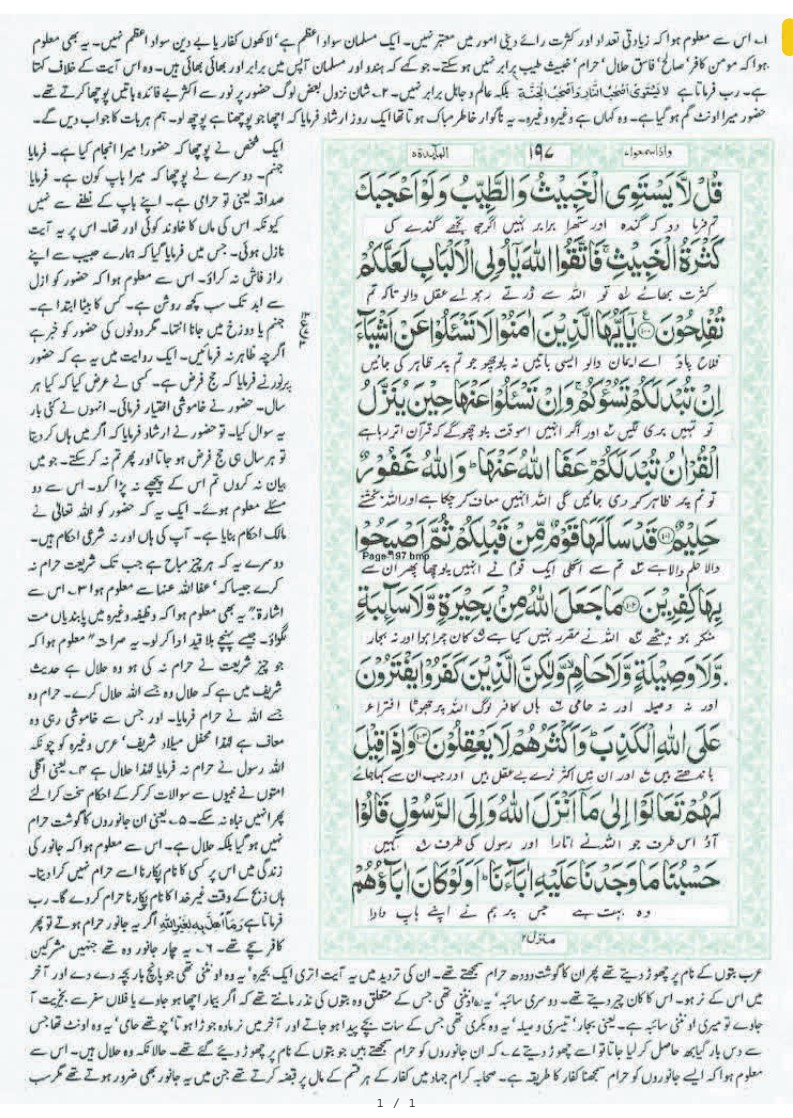 ۱۔ اس سے معلوم ہوا کہ زیادتی تعداد اور کثرت رائے دینی امور میں معتبر نہیں۔ ایک مسلمان سواد اعظم ہے' لاکھوں کفار یا بے دین سواد اعظم نہیں۔ یہ بھی معلوم
ہوا کہ مومن کافر' صالح' فاسق حلال' حرام' خبیث طیب برابر نہیں ہو سکتے۔ جو کہے کہ ہندو اور مسلمان آپس میں برابر اور بھائی بھائی ہیں۔ وہ اس آیت کے خلاف کہتا
ہے۔ رب فرماتا ہے لَا يَسْتَوِىٓ اَصْحٰبُ النَّارِ وَاَصْحٰبُ الْجَنَّةِ بلکہ عالم و جاہل برابر نہیں۔ ۲۔ شان نزول بعض لوگ حضور پر نور سے اکثر بے فائدہ باتیں پوچھا کرتے تھے۔
حضور میرا اونٹ گم ہو گیا ہے۔ وہ کہاں ہے وغیرہ وغیرہ۔ یہ ناگوار خاطر مبارک ہوتا تھا ایک روز ارشاد فرمایا کہ اچھا جو پوچھنا ہے پوچھ لو۔ ہم ہر بات کا جواب دیں گے۔
ایک شخص نے پوچھا کہ حضور! میرا انجام کیا ہے۔ فرمایا
جہنم۔ دوسرے نے پوچھا کہ میرا باپ کون ہے۔ فرمایا
صداقہ یعنی تو حرامی ہے۔ اپنے باپ کے نطفے سے نہیں
کیونکہ اس کی ماں کا خاوند کوئی اور تھا۔ اس پر یہ آیت
نازل ہوئی۔ جس میں فرمایا گیا کہ ہمارے حبیب سے اپنے
راز فاش نہ کراؤ۔ اس سے معلوم ہوا کہ حضور کو ازل
سے ابد تک سب کچھ روشن ہے۔ کس کا بیٹا ابتدا ہے۔
جہنم یا دوزخ میں جانا انتہا۔ مگر دونوں کی حضور کو خبر ہے
اگرچہ ظاہر نہ فرمائیں۔ ایک روایت میں یہ ہے کہ حضور
پرنور نے فرمایا کہ حج فرض ہے۔ کسی نے عرض کیا کہ کیا ہر
سال۔ حضور نے خاموشی اختیار فرمائی۔ انہوں نے کئی بار
یہ سوال کیا۔ تو حضور نے ارشاد فرمایا کہ اگر میں ہاں کر دیتا
تو ہر سال ہی حج فرض ہو جاتا اور پھر تم نہ کر سکتے۔ جو میں
بیان نہ کروں تم اس کے پیچھے نہ پڑا کرو۔ اس سے دو
مسئلے معلوم ہوئے۔ ایک یہ کہ حضور کو اللہ تعالیٰ نے
مالک احکام بنایا ہے۔ آپ کی ہاں اور نہ شرعی احکام ہیں۔
دوسرے یہ کہ ہر چیز مباح ہے جب تک شریعت حرام نہ
کرے جیسا کہ' عفا اللہ عنہا سے معلوم ہوا ۳۔ اس سے
اشارۃ" یہ بھی معلوم ہوا کہ وظیفہ وغیرہ میں پابندیاں مت
لگواؤ۔ جیسے پہنچے بلا قید ادا کر لو۔ یہ صراحتہ" معلوم ہوا کہ
جو چیز شریعت نے حرام نہ کی ہو وہ حلال ہے حدیث
شریف میں ہے کہ حلال وہ جسے اللہ حلال کرے۔ حرام وہ
جسے اللہ نے حرام فرمایا۔ اور جس سے خاموشی رہی وہ
معاف ہے لہٰذا محفل میلاد شریف' عرس وغیرہ کو چونکہ
اللہ رسول نے حرام نہ فرمایا لہٰذا حلال ہے ۴۔ یعنی اگلی
امتوں نے نبیوں سے سوالات کر کر کے احکام سخت کرا لئے
پھر انہیں نباہ نہ سکے۔ ۵۔ یعنی ان جانوروں کا گوشت حرام
نہیں ہو گیا بلکہ حلال ہے۔ اس سے معلوم ہوا کہ جانور کی
زندگی میں اس پر کسی کا نام پکارنا اسے حرام نہیں کرا دیتا۔
ہاں ذبح کے وقت غیر خدا کا نام پکارنا حرام کر دے گا۔ رب
فرماتا ہے وَمَآ اُهِلَّ بِهٖ لِغَيْرِ اللّٰهِ اگر یہ جانور حرام ہوتے تو پھر
کافر سچے تھے۔ ۶۔ یہ چار جانور وہ تھے جنہیں مشرکین
واذاسمعوا۷ ۱۹۷ المآئدة۵
قُلْ لَّا يَسْتَوِى الْخَبِيْثُ وَالطَّيِّبُ وَلَوْ اَعْجَبَكَ
تم فرما دو کہ گندہ اور ستھرا برابر نہیں اگرچہ تجھے گندے کی
كَثْرَةُ الْخَبِيْثِ ۚ فَاتَّقُوا اللّٰهَ يٰٓاُولِى الْاَلْبَابِ لَعَلَّكُمْ
کثرت بھائے ۱ تو اللہ سے ڈرتے رہو اے عقل والو تاکہ تم
تُفْلِحُوْنَ ۝۱۰۰ يٰٓاَيُّهَا الَّذِيْنَ اٰمَنُوْا لَا تَسْـَٔلُوْا عَنْ اَشْيَآءَ
فلاح پاؤ اے ایمان والو ایسی باتیں نہ پوچھو جو تم پر ظاہر کی جائیں
اِنْ تُبْدَ لَكُمْ تَسُؤْكُمْ ۚ وَاِنْ تَسْـَٔلُوْا عَنْهَا حِيْنَ يُنَزَّلُ
تو تمہیں بری لگیں ۲ اور اگر انہیں اسوقت پوچھو گے کہ قرآن اتر رہا ہے
الْقُرْاٰنُ تُبْدَ لَكُمْ ؕ عَفَا اللّٰهُ عَنْهَا ؕ وَاللّٰهُ غَفُوْرٌ
تو تم پر ظاہر کر دی جائیں گی اللہ انہیں معاف کر چکا ہے اور اللہ بخشنے
حَلِيْمٌ ۝۱۰۱ قَدْ سَاَلَهَا قَوْمٌ مِّنْ قَبْلِكُمْ ثُمَّ اَصْبَحُوْا
Page-197.bmp
والا حلم والا ہے ۳ تم سے اگلی ایک قوم نے انہیں پوچھا پھر ان سے
بِهَا كٰفِرِيْنَ ۝۱۰۲ مَا جَعَلَ اللّٰهُ مِنْۢ بَحِيْرَةٍ وَّلَا سَآئِبَةٍ
منکر ہو بیٹھے ۴ اللہ نے مقرر نہیں کیا ہے ۵ کان چرا ہوا اور نہ بجار
وَّلَا وَصِيْلَةٍ وَّلَا حَامٍ ۙ وَّلٰكِنَّ الَّذِيْنَ كَفَرُوْا يَفْتَرُوْنَ
اور نہ وصیلہ اور نہ حامی ۶ ہاں کافر لوگ اللہ پر جھوٹا افتراء
عَلَى اللّٰهِ الْكَذِبَ ؕ وَاَكْثَرُهُمْ لَا يَعْقِلُوْنَ ۝۱۰۳ وَاِذَا قِيْلَ
باندھتے ہیں ۷ اور ان میں اکثر نرے بے عقل ہیں اور جب ان سے کہا جائے
لَهُمْ تَعَالَوْا اِلٰى مَآ اَنْزَلَ اللّٰهُ وَاِلَى الرَّسُوْلِ قَالُوْا
آؤ اس طرف جو اللہ نے اتارا اور رسول کی طرف ۸ کہیں
حَسْبُنَا مَا وَجَدْنَا عَلَيْهِ اٰبَآءَنَا ؕ اَوَلَوْ كَانَ اٰبَآؤُهُمْ
وہ بہت ہے جس پر ہم نے اپنے باپ دادا
منزل۲
عرب بتوں کے نام پر چھوڑ دیتے تھے پھر ان کا گوشت دودھ حرام سمجھتے تھے۔ ان کی تردید میں یہ آیت اتری ایک بحیرہ' یہ وہ اونٹنی تھی جو پانچ بار بچہ دے دے اور آخر
میں اس کے نر ہو۔ اس کا کان چیر دیتے تھے۔ دوسری سائبہ' یہ وہ اونٹنی تھی جس کے متعلق وہ بتوں کی نذر مانتے تھے کہ اگر بیمار اچھا ہو جاوے یا فلاں سفر سے بخیریت آ
جاوے تو میری اونٹنی سائبہ ہے۔ یعنی بجار' تیسری وصیلہ' یہ وہ بکری تھی جس کے سات بچے پیدا ہو جاتے اور آخر میں نر مادہ جوڑا ہوتا' چوتھے حامی' یہ وہ اونٹ تھا جس
سے دس بار گیابھ حاصل کر لیا جاتا تو اسے چھوڑ دیتے ۷۔ کہ ان جانوروں کو حرام سمجھتے ہیں جو بتوں کے نام پر چھوڑ دیئے گئے تھے۔ حالانکہ وہ حلال ہیں۔ اس سے
معلوم ہوا کہ ایسے جانوروں کو حرام سمجھنا کفار کا طریقہ ہے۔ صحابہ کرام جہاد میں کفار کے ہر قسم کے مال پر قبضہ کرتے تھے جن میں یہ جانور بھی ضرور ہوتے تھے مگر سب
1 / 1